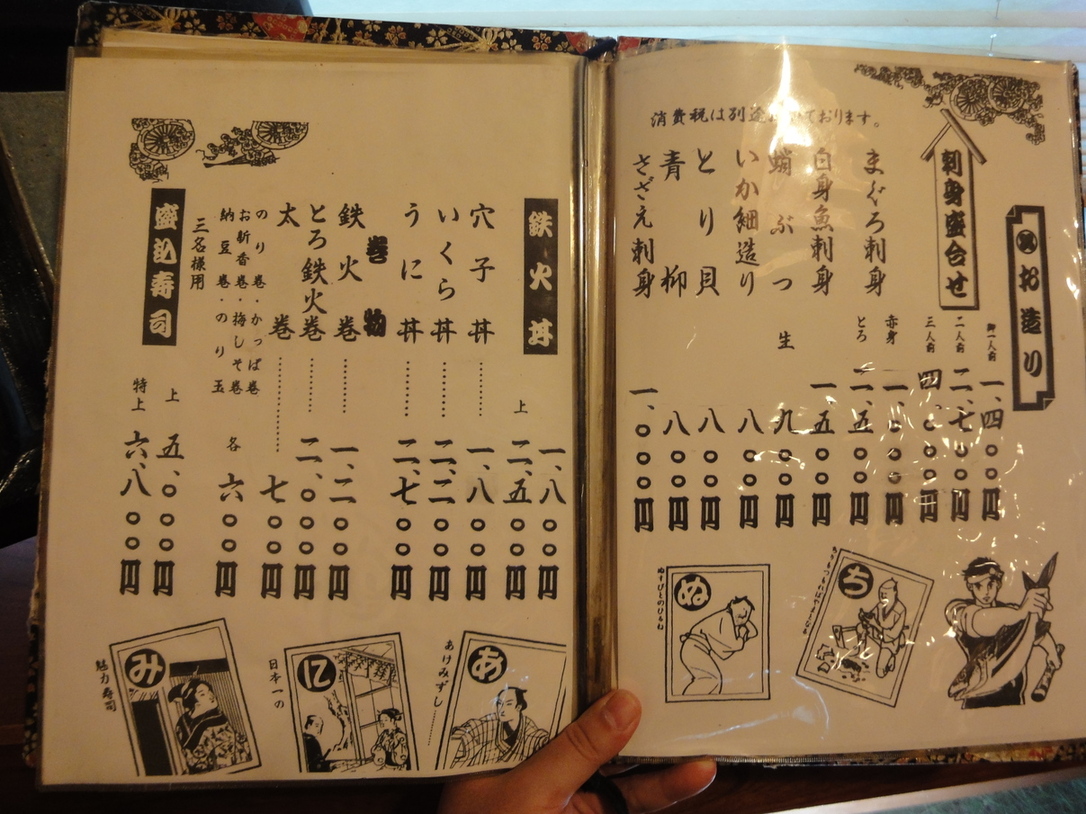 消費税は別途 ております。
お造り
刺身盛合せ
御一人前 一、四〇〇円
二人前 二、七〇〇円
三人前 四、〇〇〇円
まぐろ刺身
赤身 一、〇〇円
とろ 二、五〇〇円
白身魚刺身 一、五〇〇円
蛸ぶつ 生 九〇〇円
いか細造り 八〇〇円
とり貝 八〇〇円
青柳 八〇〇円
さざえ刺身 一、〇〇〇円
ち
ぬ
ぬすびとのひるね
鉄火丼 一、八〇〇円
上 二、五〇〇円
穴子丼……… 一、八〇〇円
いくら丼……… 二、二〇〇円
うに丼……… 二、七〇〇円
巻物
鉄火巻……… 一、二〇〇円
とろ鉄火巻……… 二、〇〇〇円
太巻……… 七〇〇円
のり巻・かっぱ巻
お新香巻・梅しそ巻
納豆巻・のり玉
各 六〇〇円
盛込寿司
三名様用
上 五、〇〇〇円
特上 六、八〇〇円
あ
あけみずし………
に
日本一の
み
魅力寿司